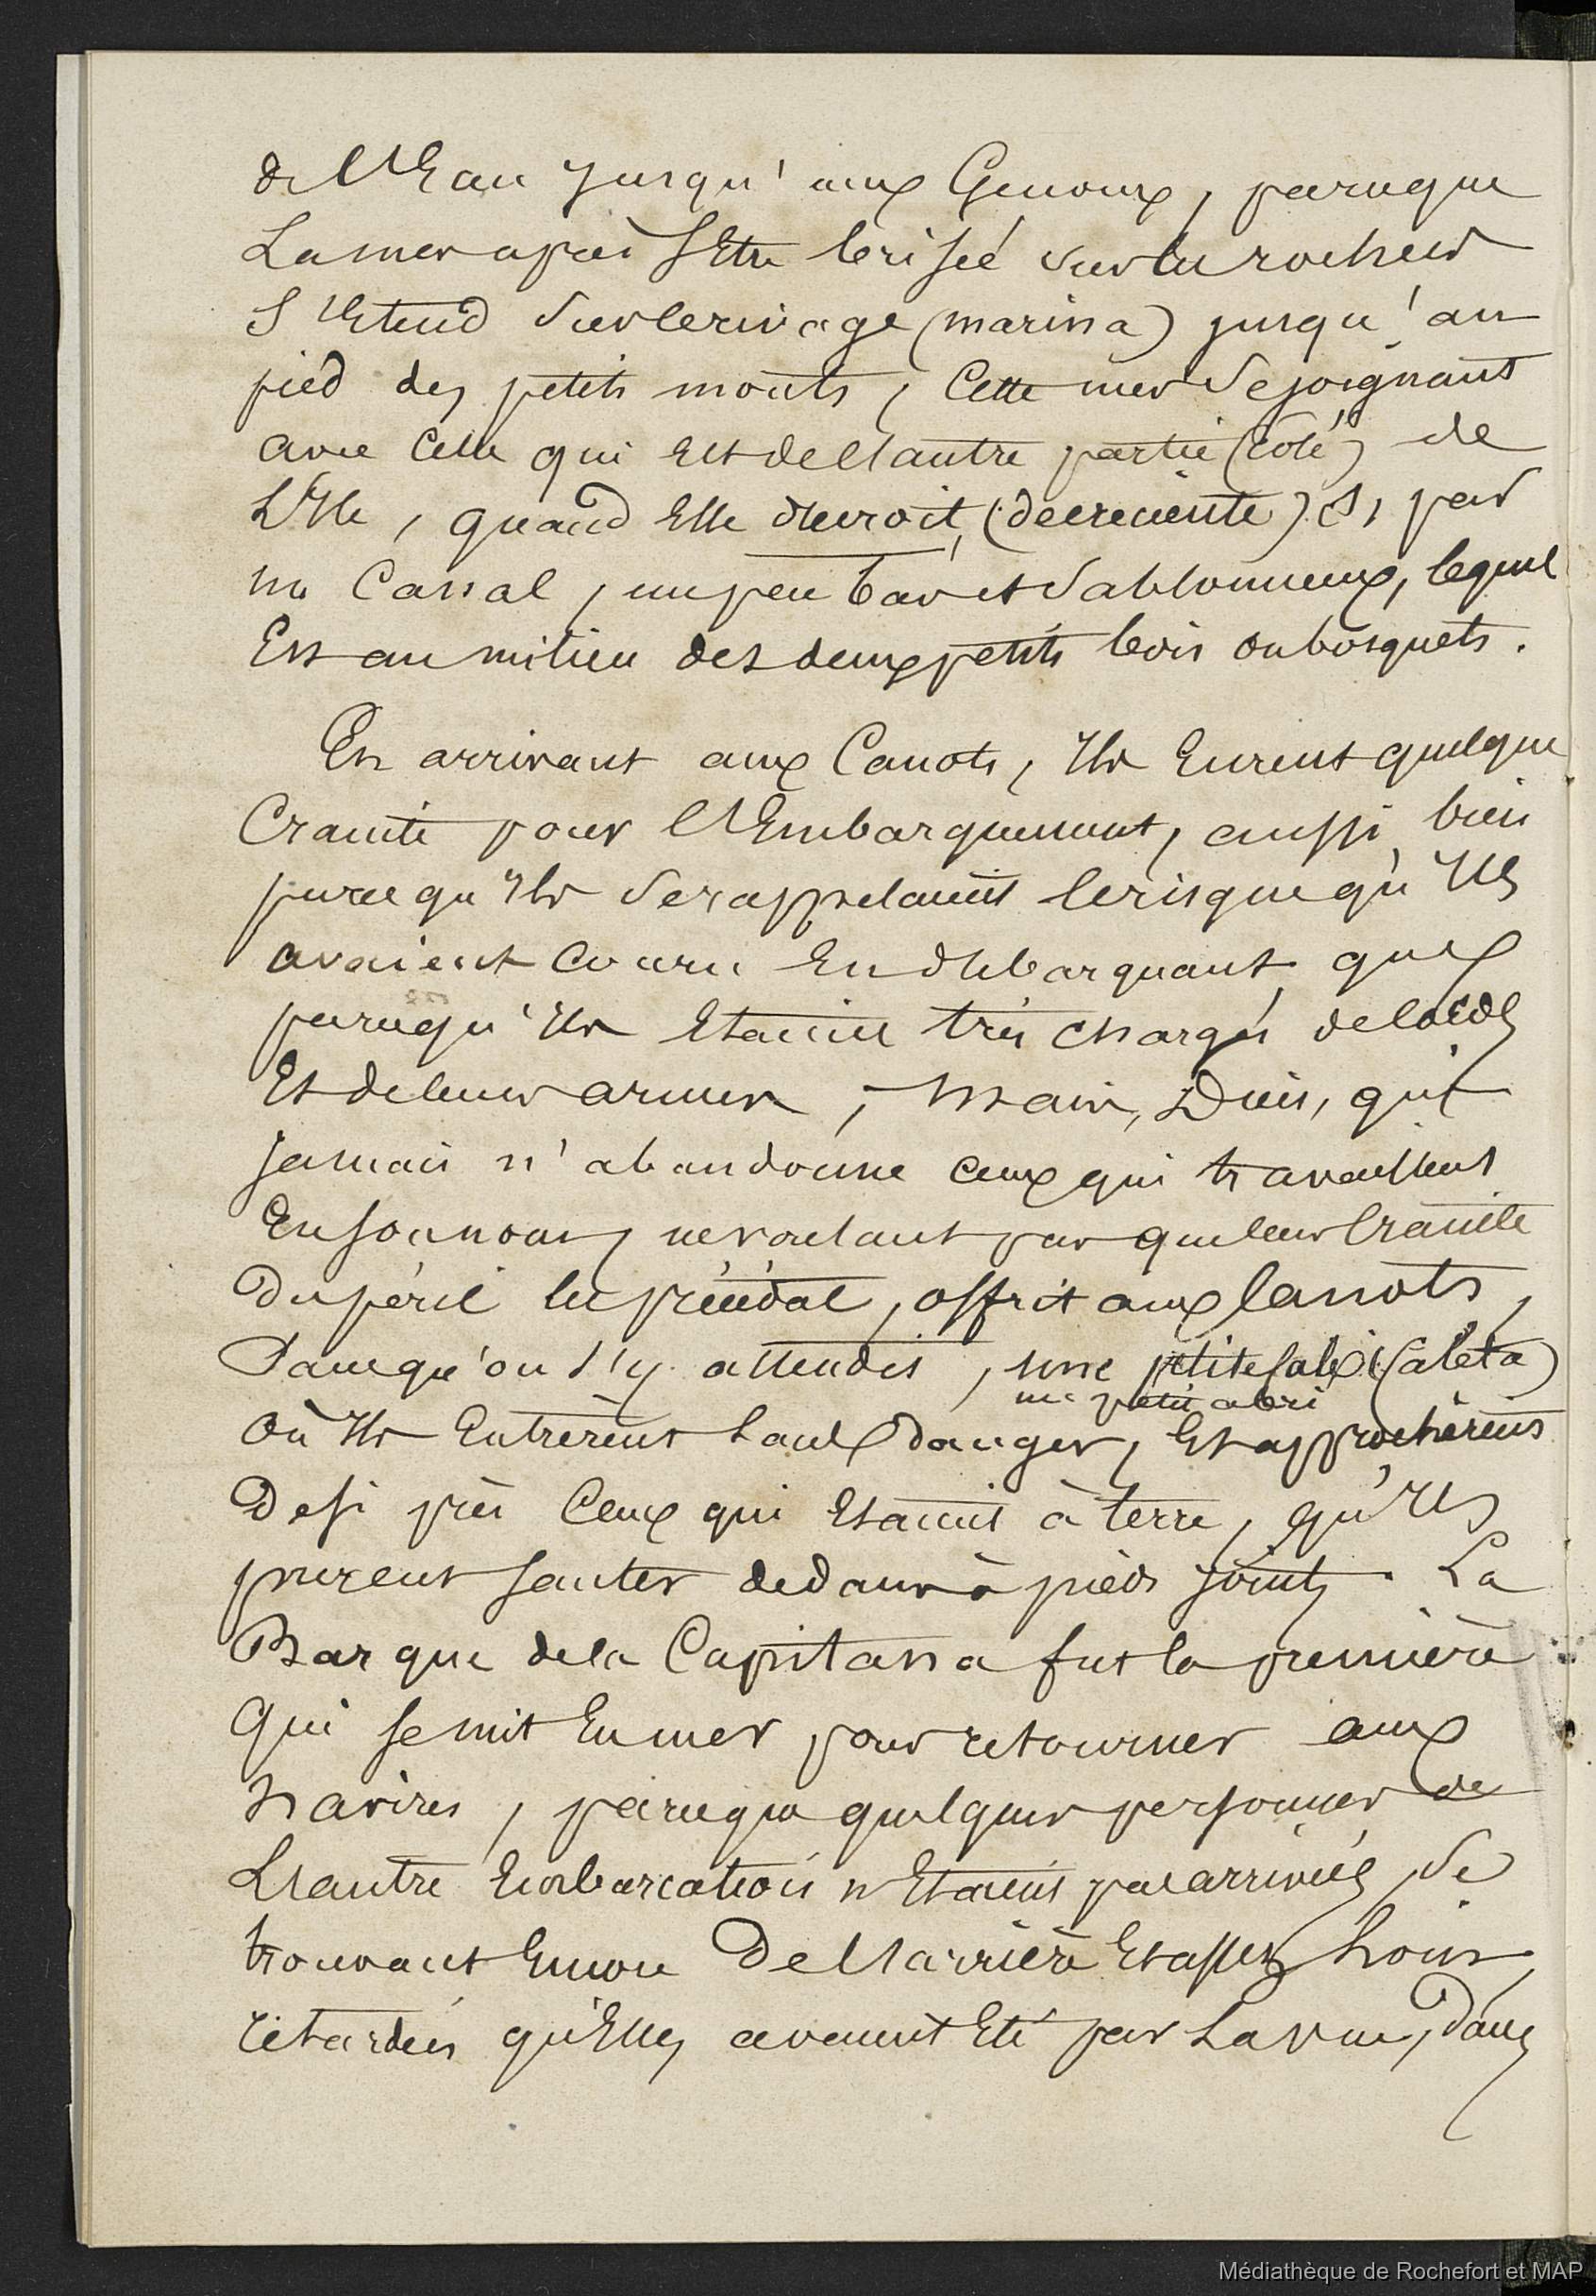 de l'Eau jusqu'aux Genoux, parceque
La mer après s'Etre brisée sur les rochers
s'Etend sur le rivage (marina) jusqu'au
pied des petits monts, Cette mer se joignant
avec Celle qui Est de l'autre partie (Coté) de
L'Ile, quand Elle décroit, (decreciente), par
un Canal, un peu bas et sablonneux, lequel
Est au milieu des deux petits bois ou bosquets.
En arrivant aux Canots, Ils Eurent quelque
Crainte pour l'Embarquement, aussi bien
parcequ'Ils se rappelaient le risque qu'Ils
avaient Couru En débarquant que
parcequ'Ils Etaient très chargés de
Et de leurs armes, Mais, Dieu, qui
jamais n'abandonne ceux qui travaillent
En son nom, ne voulant pas que leur Crainte
Du péril les précédat, offrit aux Canots,
Sans qu'on s'y attendis, une petite Cale (Caleta)
un petit abri
Où Ils Entrèrent sans danger, Et approchèrent
De si près Ceux qui Etaient à terre, qu'Ils
purent sauter dedans à pieds joints. La
Barque de la Capitana fut la première
Qui se mit En mer pour retourner aux
Navires, parceque quelques personnes de
L'autre Embarcation n'Etaient pas arrivées, se
trouvant Encore De l'arrière Et assez
retardées qu'Elles avaient Eté par La vue, Dans